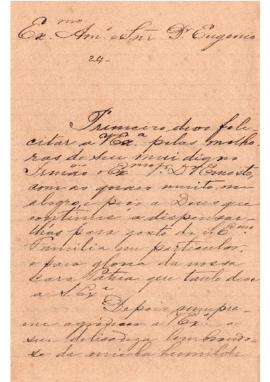 Ex.mo Am.o e Snr. Dr. Eugenio
24-
Primeiro, devo feli-
citar a V Ex.a pelas melho-
ras do seu mui digno
Irmão o Ex.mo Sr. Dr. Ernesto,
com as quais muito me
alegro, e peço a Deus que
continue a dispensar-
lhas para gosto da
Familia em particular,
e para gloria da nossa
cara Patria que tanto deve
a S. Ex.a
Depois cumpre-
me agradecer a V Ex.a a
sua delicadeza lembrando-
se da minha humilde